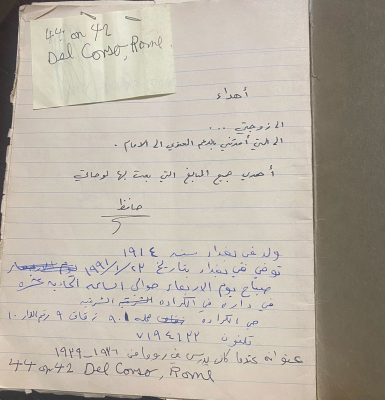 44 on 42
Del Corso, Rome.
أهداء
الى زوجتي ....
الى التي أمدتني بالدعم المعنوي الى الامام .
أهدي جميع المبالغ التي بيعت بها لوحاتي
حافظ
ولد في بغداد سنة ١٩١٤
توفي في بغداد بتاريخ ٢٣/١/١٩٩١
صباح يوم الاربعاء حوالي الساعة الحادية عشرة
في داره في الكرادة الشرقية
حي الكرادة محلة ٩٠١ زقاق ٩ رقم الدار ١٠
تلفون ٧١٩٤٦٢٢
عنوانه عندما كان يدرس في روما من ١٩٣٦-١٩٣٩
44 on 42 Del Corso, Rome